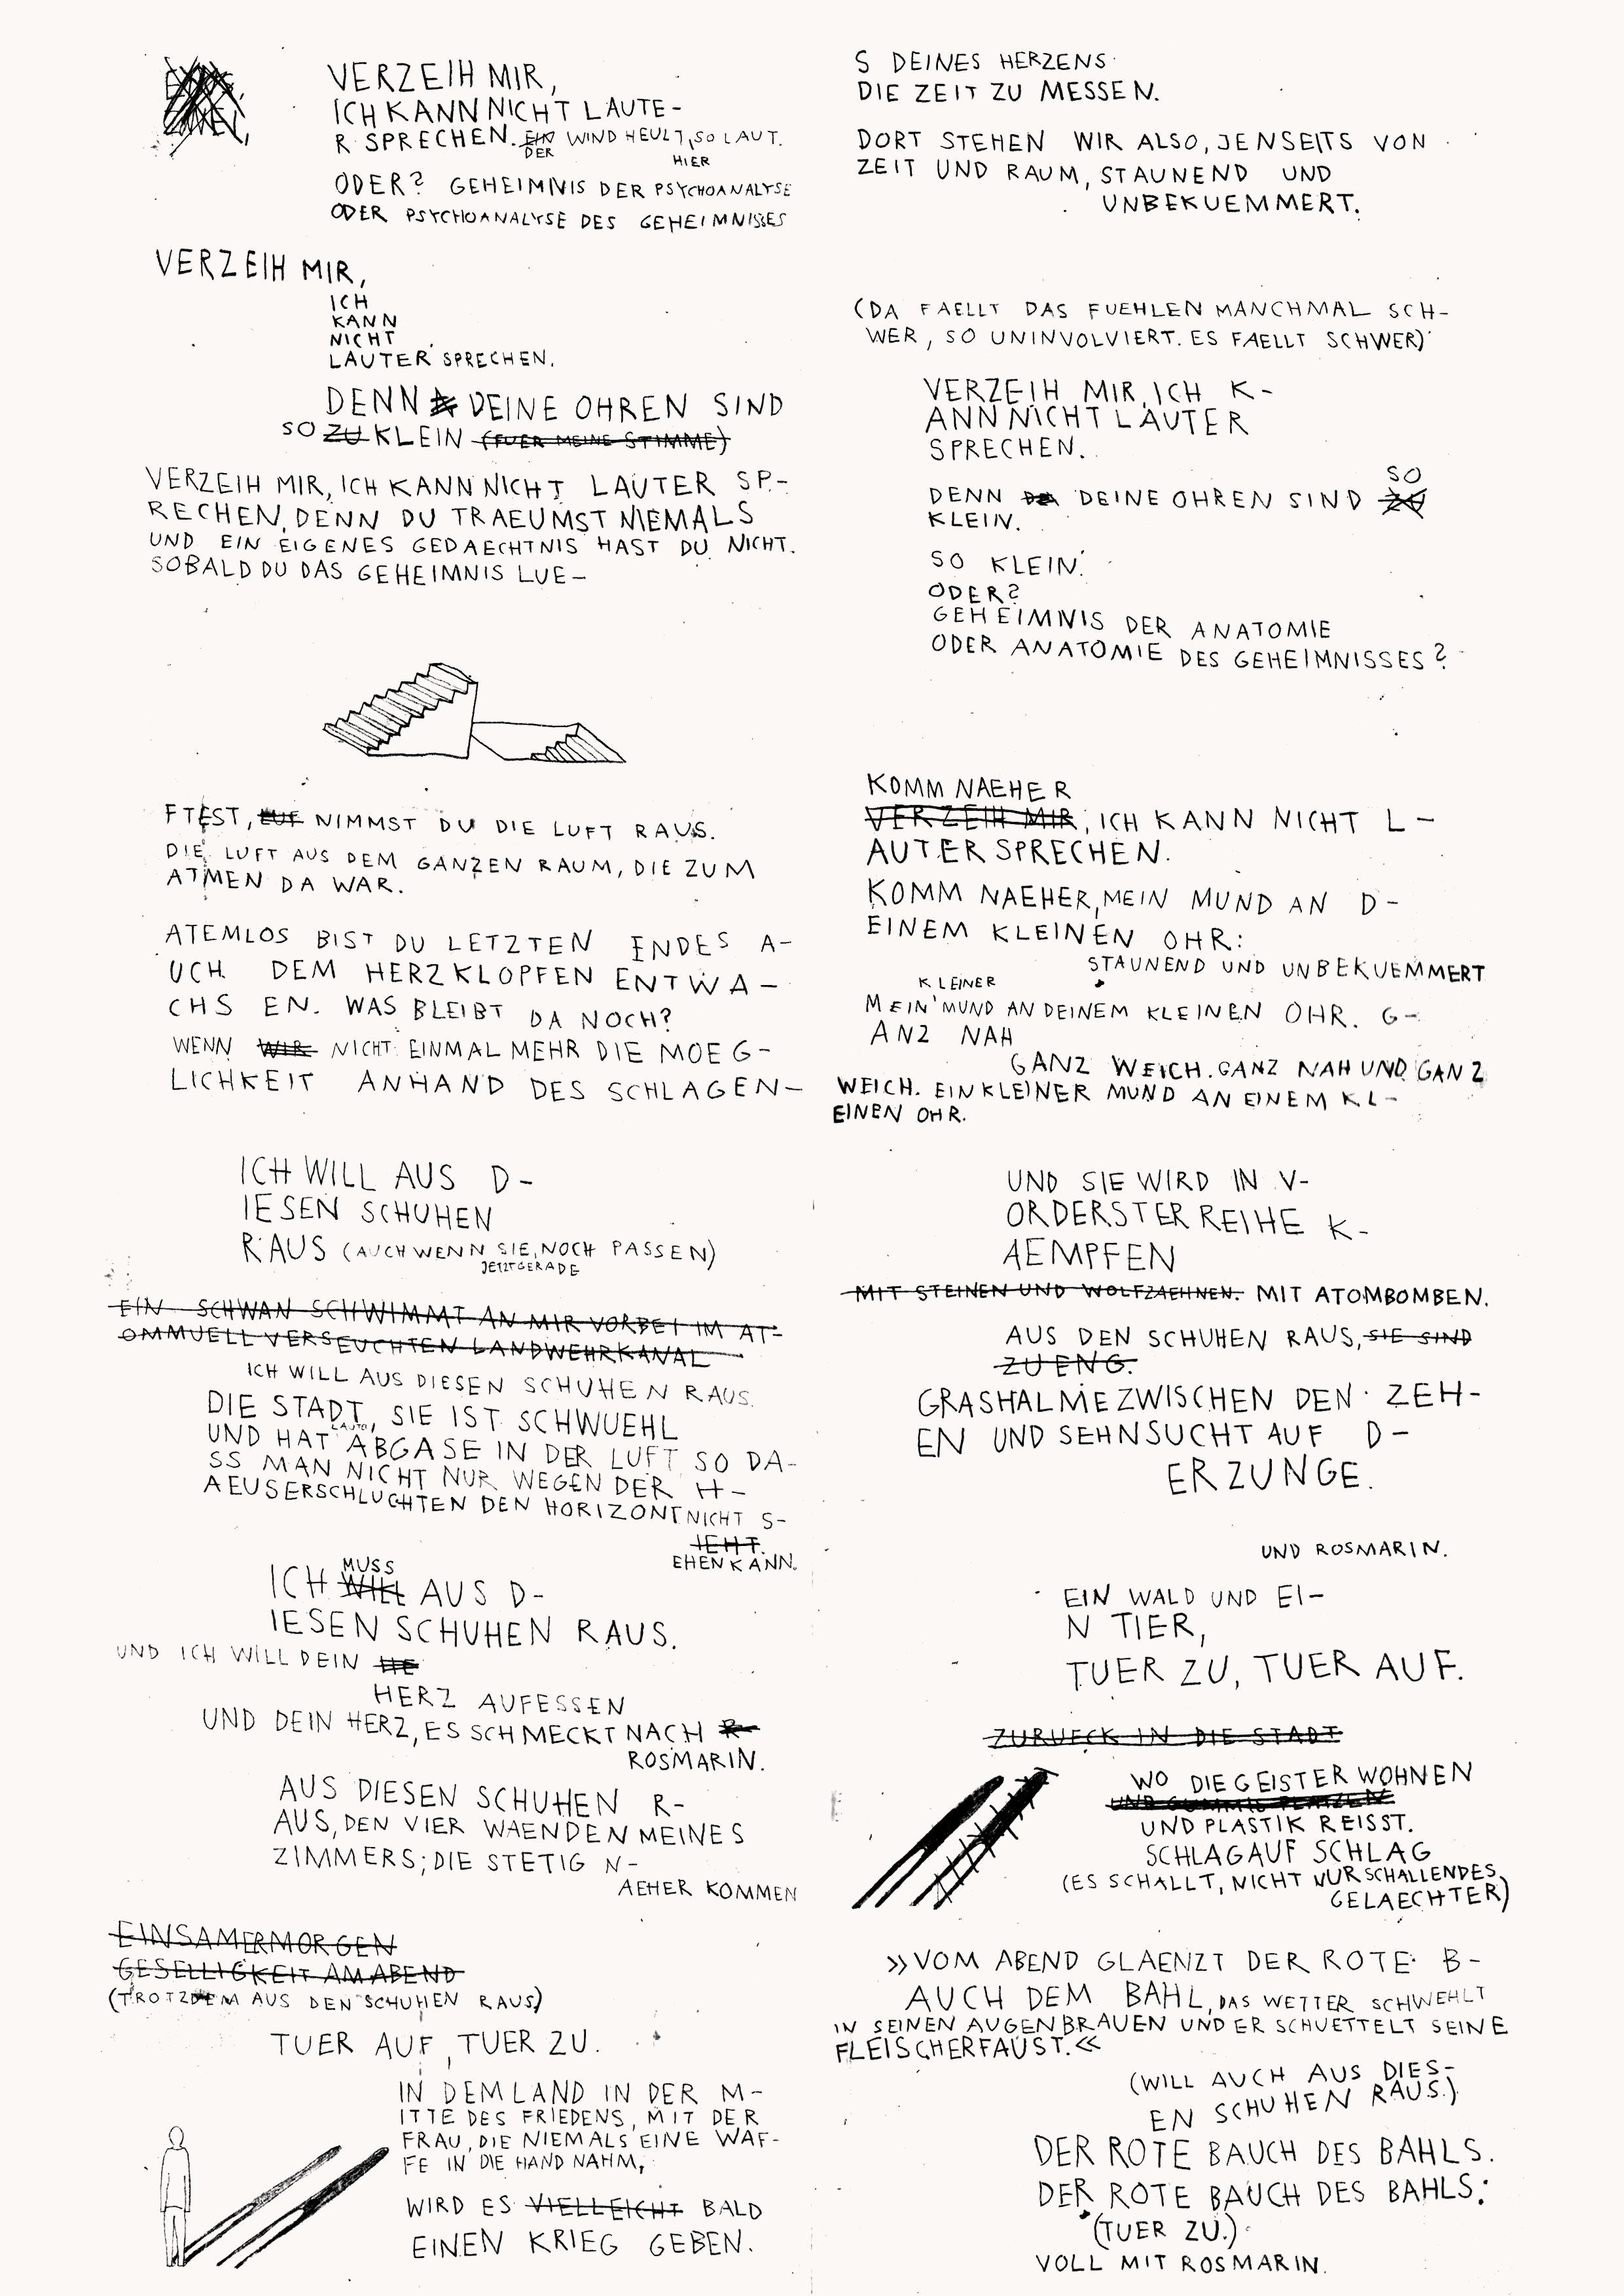 VERZEIH MIR,
ICH KANN NICHT LAUTE-
R SPRECHEN. EIN DER WIND HEULT, SO LAUT.
HIER
ODER? GEHEIMNIS DER PSYCHOANALYSE
ODER PSYCHOANALYSE DES GEHEIMNISSES
VERZEIH MIR,
ICH
KANN
NICHT
LAUTER SPRECHEN.
DENN DEINE OHREN SIND
SO ZU KLEIN (FUER MEINE STIMME)
VERZEIH MIR, ICH KANN NICHT LAUTER SP-
RECHEN, DENN DU TRAEUMST NIEMALS
UND EIN EIGENES GEDAECHTNIS HAST DU NICHT.
SOBALD DU DAS GEHEIMNIS LUE-
FTEST, NIMMST DU DIE LUFT RAUS.
DIE LUFT AUS DEM GANZEN RAUM, DIE ZUM
ATMEN DA WAR.
ATEMLOS BIST DU LETZTEN ENDES A-
UCH DEM HERZKLOPFEN ENTWA-
CHS EN. WAS BLEIBT DA NOCH?
WENN WIR NICHT EINMAL MEHR DIE MOEG-
LICHKEIT ANHAND DES SCHLAGEN-
S DEINES HERZENS
DIE ZEIT ZU MESSEN.
DORT STEHEN WIR ALSO, JENSEITS VON
ZEIT UND RAUM, STAUNEND UND
UNBEKUEMMERT.
(DA FAELLT DAS FUEHLEN MANCHMAL SCH-
WER, SO UNINVOLVIERT. ES FAELLT SCHWER)
VERZEIH MIR, ICH K-
ANN NICHT LAUTER
SPRECHEN.
SO
DENN DEINE OHREN SIND ZU
KLEIN.
SO KLEIN.
ODER?
GEHEIMNIS DER ANATOMIE
ODER ANATOMIE DES GEHEIMNISSES?
KOMM NAEHER
VERZEIH MIR, ICH KANN NICHT L-
AUTER SPRECHEN.
KOMM NAEHER, MEIN MUND AN D-
EINEM KLEINEN OHR:
STAUNEND UND UNBEKUEMMERT
KLEINER
MEIN MUND AN DEINEM KLEINEN OHR. G-
ANZ NAH
GANZ WEICH. GANZ NAH UND GANZ
WEICH. EIN KLEINER MUND AN EINEM KL-
EINEN OHR.
ICH WILL AUS D-
IESEN SCHUHEN
RAUS (AUCH WENN SIE NOCH PASSEN)
JETZT GERADE
EIN SCHWAN SCHWIMMT AN MIR VORBEI IM AT-
OMMUELL VERSEUCHTEN LANDWEHRKANAL
ICH WILL AUS DIESEN SCHUHEN RAUS.
DIE STADT, SIE IST SCHWUEHL
UND HAT LAUTO, ABGASE IN DER LUFT SO DA-
SS MAN NICHT NUR WEGEN DER H-
AEUSERSCHLUCHTEN DEN HORIZONT NICHT S-
IEHT.
EHEN KANN.
MUSS
ICH WILL AUS D-
IESEN SCHUHEN RAUS.
UND ICH WILL DEIN HE
HERZ AUFESSEN
UND DEIN HERZ, ES SCHMECKT NACH R-
ROSMARIN.
AUS DIESEN SCHUHEN R-
AUS, DEN VIER WAENDEN MEINES
ZIMMERS; DIE STETIG N-
AEHER KOMMEN
EINSAMER MORGEN
GESELLIGKEIT AM ABEND
(TROTZDEM AUS DEN SCHUHEN RAUS)
TUER AUF, TUER ZU.
IN DEM LAND IN DER M-
ITTE DES FRIEDENS, MIT DER
FRAU, DIE NIEMALS EINE WAF-
FE IN DIE HAND NAHM,
WIRD ES VIELLEICHT BALD
EINEN KRIEG GEBEN.
UND SIE WIRD IN V-
ORDERSTER REIHE K-
AEMPFEN
MIT STEINEN UND WOLFZAEHNEN. MIT ATOMBOMBEN.
AUS DEN SCHUHEN RAUS, SIE SIND
ZU ENG.
GRASHALME ZWISCHEN DEN ZEH-
EN UND SEHNSUCHT AUF D-
ER ZUNGE.
UND ROSMARIN.
EIN WALD UND EI-
N TIER,
TUER ZU, TUER AUF.
ZURUECK IN DIE STADT
WO DIE GEISTER WOHNEN
UND GUMMIS PLATZEN
UND PLASTIK REISST.
SCHLAG AUF SCHLAG
(ES SCHALLT, NICHT NUR SCHALLENDES
GELAECHTER)
»VOM ABEND GLAENZT DER ROTE B-
AUCH DEM BAHL, DAS WETTER SCHWEHLT
IN SEINEN AUGENBRAUEN UND ER SCHUETTELT SEINE
FLEISCHERFAUST.«
(WILL AUCH AUS DIES-
EN SCHUHEN RAUS.)
DER ROTE BAUCH DES BAHLS.
DER ROTE BAUCH DES BAHLS:
(TUER ZU.)
VOLL MIT ROSMARIN.